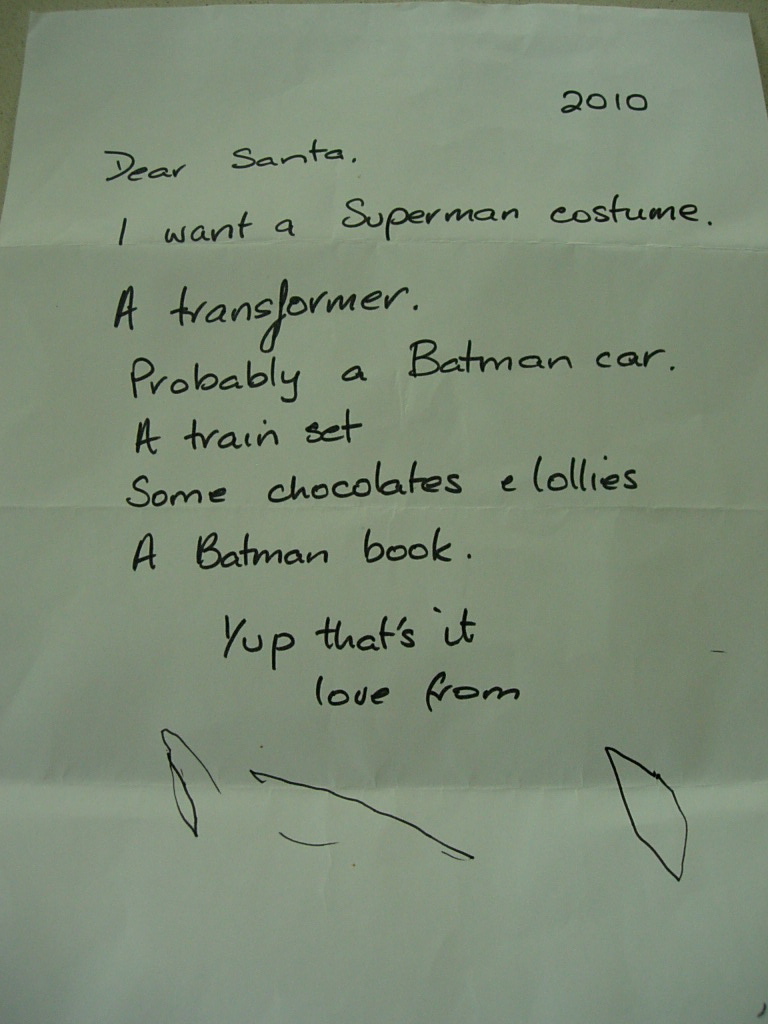 2010
Dear Santa.
I want a Superman costume.
A transformer.
Probably a Batman car.
A train set
Some chocolates e lollies
A Batman book.
Yup that's it
love from